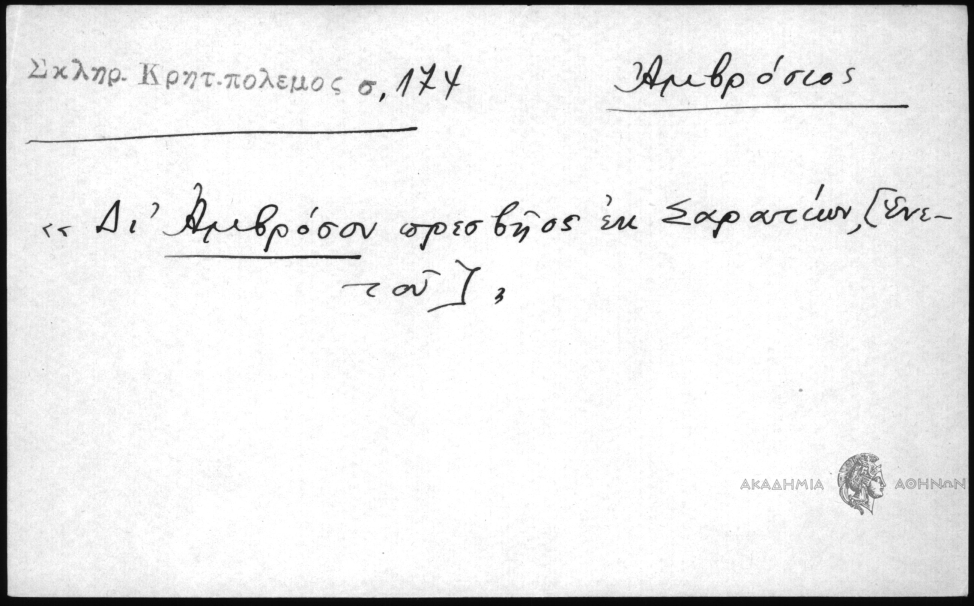 Σκληρ. Κρητ. πολεμος σ, 174
Ἀμβρόσιος
‹‹ Δι' Ἀμβρόσον πρεσβῆος ἐκ Σαρατίων, [Ἑνε-
τοῦ] ,
ΑΚΑΔΗΜΙΑ ΑΘΗΝΩΝ